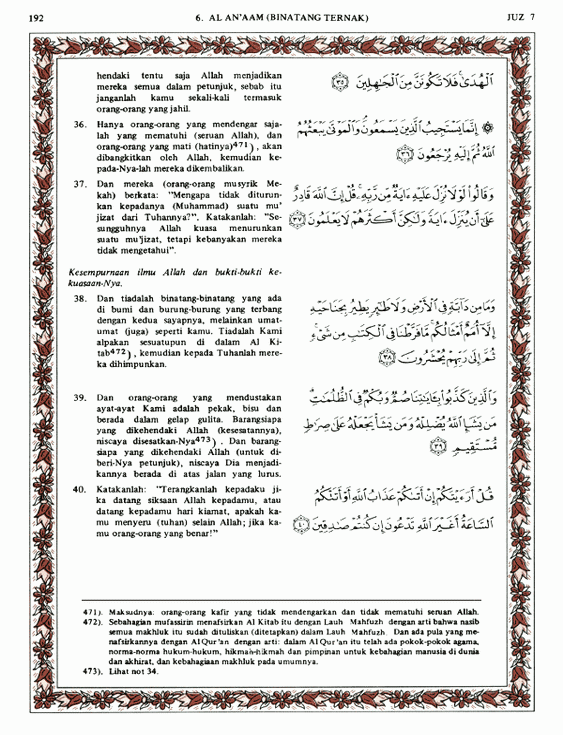 192
6. AL AN'AAM (BINATANG TERNAK)
JUZ 7
hendaki tentu saja Allah menjadikan
mereka semua dalam petunjuk, sebab itu
janganlah kamu sekali-kali termasuk
orang-orang yang jahil.
36. Hanya orang-orang yang mendengar saja-
lah yang mematuhi (seruan Allah), dan
orang-orang yang mati (hatinya)471), akan
dibangkitkan oleh Allah, kemudian ke-
pada-Nya-lah mereka dikembalikan.
37. Dan mereka (orang-orang musyrik Me-
kah) berkata: "Mengapa tidak diturun-
kan kepadanya (Muhammad) suatu mu'
jizat dari Tuhannya?". Katakanlah: "Se-
sungguhnya Allah kuasa menurunkan
suatu mu'jizat, tetapi kebanyakan mereka
tidak mengetahui".
Kesempurnaan ilmu Allah dan bukti-bukti ke-
kuasaan-Nya.
38. Dan tiadalah binatang-binatang yang ada
di bumi dan burung-burung yang terbang
dengan kedua sayapnya, melainkan umat-
umat (juga) seperti kamu. Tiadalah Kami
alpakan sesuatupun di dalam Al Ki-
tab472), kemudian kepada Tuhanlah mere-
ka dihimpunkan.
39. Dan orang-orang yang mendustakan
ayat-ayat Kami adalah pekak, bisu dan
berada dalam gelap gulita. Barangsiapa
yang dikehendaki Allah (kesesatannya),
niscaya disesatkan-Nya473). Dan barang-
siapa yang dikehendaki Allah (untuk di-
beri-Nya petunjuk), niscaya Dia menjadi-
kannya berada di atas jalan yang lurus.
40. Katakanlah: "Terangkanlah kepadaku ji-
ka datang siksaan Allah kepadamu, atau
datang kepadamu hari kiamat, apakah ka-
mu menyeru (tuhan) selain Allah; jika ka-
mu orang-orang yang benar!"
الْهُدَىٰ فَلَا تَكُونَنَّ مِنَ الْجَاهِلِينَ ﴿٣٥﴾
۞ إِنَّمَا يَسْتَجِيبُ الَّذِينَ يَسْمَعُونَ وَالْمَوْتَىٰ يَبْعَثُهُمُ
اللَّهُ ثُمَّ إِلَيْهِ يُرْجَعُونَ ﴿٣٦﴾
وَقَالُوا لَوْلَا نُزِّلَ عَلَيْهِ ءَايَةٌ مِّن رَّبِّهِۦ قُلْ إِنَّ اللَّهَ قَادِرٌ
عَلَىٰ أَن يُنَزِّلَ ءَايَةً وَلَٰكِنَّ أَكْثَرَهُمْ لَا يَعْلَمُونَ ﴿٣٧﴾
وَمَا مِن دَابَّةٍ فِي الْأَرْضِ وَلَا طَائِرٍ يَطِيرُ بِجَنَاحَيْهِ
إِلَّا أُمَمٌ أَمْثَالُكُم مَّا فَرَّطْنَا فِي الْكِتَٰبِ مِن شَيْءٍ
ثُمَّ إِلَىٰ رَبِّهِمْ يُحْشَرُونَ ﴿٣٨﴾
وَالَّذِينَ كَذَّبُوا بِـَٔايَٰتِنَا صُمٌّ وَبُكْمٌ فِي الظُّلُمَٰتِ
مَن يَشَإِ اللَّهُ يُضْلِلْهُ وَمَن يَشَأْ يَجْعَلْهُ عَلَىٰ صِرَٰطٍ
مُّسْتَقِيمٍ ﴿٣٩﴾
قُلْ أَرَءَيْتَكُمْ إِنْ أَتَىٰكُمْ عَذَابُ اللَّهِ أَوْ أَتَتْكُمُ
السَّاعَةُ أَغَيْرَ اللَّهِ تَدْعُونَ إِن كُنتُمْ صَٰدِقِينَ ﴿٤٠﴾
471). Maksudnya: orang-orang kafir yang tidak mendengarkan dan tidak mematuhi seruan Allah.
472). Sebahagian mufassirin menafsirkan Al Kitab itu dengan Lauh Mahfuzh dengan arti bahwa nasib
semua makhluk itu sudah dituliskan (ditetapkan) dalam Lauh Mahfuzh. Dan ada pula yang me-
nafsirkannya dengan Al Qur'an dengan arti: dalam Al Qur'an itu telah ada pokok-pokok agama,
norma-norma hukum-hukum, hikmah-hikmah dan pimpinan untuk kebahagian manusia di dunia
dan akhirat, dan kebahagiaan makhluk pada umumnya.
473). Lihat not 34.